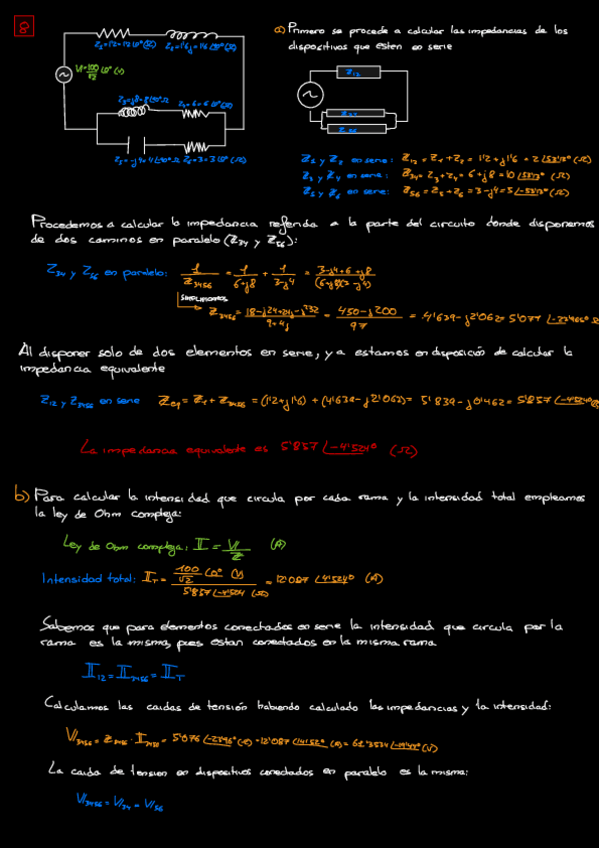 8
a) Primero se procede a calcular las impedancias de los
dispositivos que esten en serie
Z1=1'2=1'2∠0° (Ω)
Z2=1'6j=1'6∠90° (Ω)
V=100/√2 ∠0° (V)
Z3=j8=8∠90° Ω
Z4=6=6∠0° (Ω)
Z5=-j4=4∠-90° Ω
Z6=3=3∠0° (Ω)
Z12
Z34
Z56
Z1 y Z2 en serie: Z12=Z1+Z2=1'2+j1'6=2∠53'13° (Ω)
Z3 y Z4 en serie: Z34=Z3+Z4=6+j8=10∠53'13° (Ω)
Z5 y Z6 en serie: Z56=Z5+Z6=3-j4=5∠-53'13° (Ω)
Procedemos a calcular la impedancia referida a la parte del circuito donde disponemos
de dos caminos en paralelo (Z34 y Z56):
Z34 y Z56 en paralelo: 1/Z3456 = 1/(6+j8) + 1/(3-j4) = (3-j4+6+j8)/((6+j8)(3-j4))
Z3456 = (18-j24+24j-j²32)/(9+4j) = (450-j200)/97 = 4'639-j2'062=5'077
Al disponer solo de dos elementos en serie, ya estamos en disposición de calcular la
impedancia equivalente
Z12 y Z3456 en serie Zeq=Z1+Z3456=(1'2+j1'6)+(4'639-j2'062)=5'839-j0'462=5'857∠-4'524°
La impedancia equivalente es 5'857∠-4'524° (Ω)
b) Para calcular la intensidad que circula por cada rama y la intensidad total empleamos
la ley de Ohm compleja:
Ley de Ohm compleja: I = V/Z (A)
Intensidad total: IT = (100/√2 ∠0° (V))/(5'857∠-4'524 (Ω)) = 12'087∠4'524° (A)
Sabemos que para elementos conectados en serie la intensidad que circula por la
rama es la misma, pues estan conectados en la misma rama.
I12=I3456=IT
Calculamos las caidas de tensión habiendo calculado las impedancias y la intensidad:
V3456=Z3456·I3456=5'076
La caida de tension en dispositivos conectados en paralelo es la misma:
V3456=V34=V56